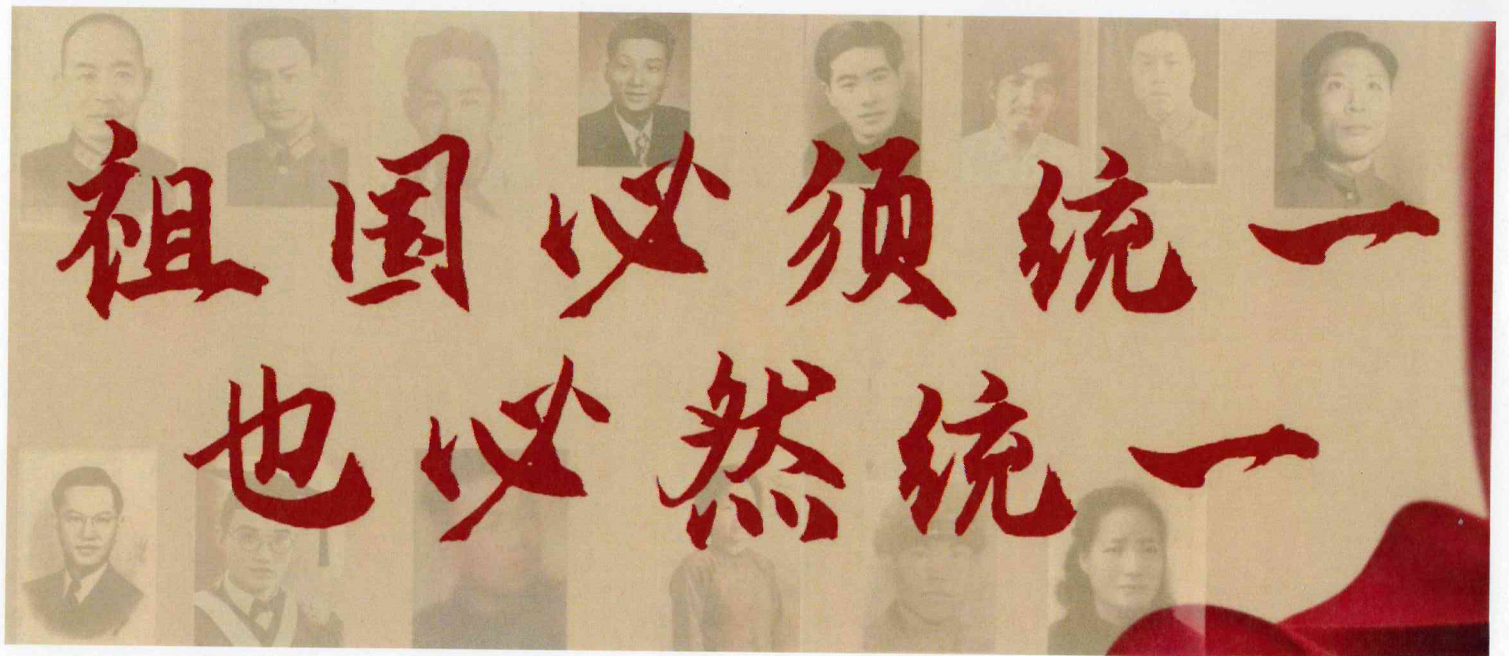 祖国必须统一
也必然统一